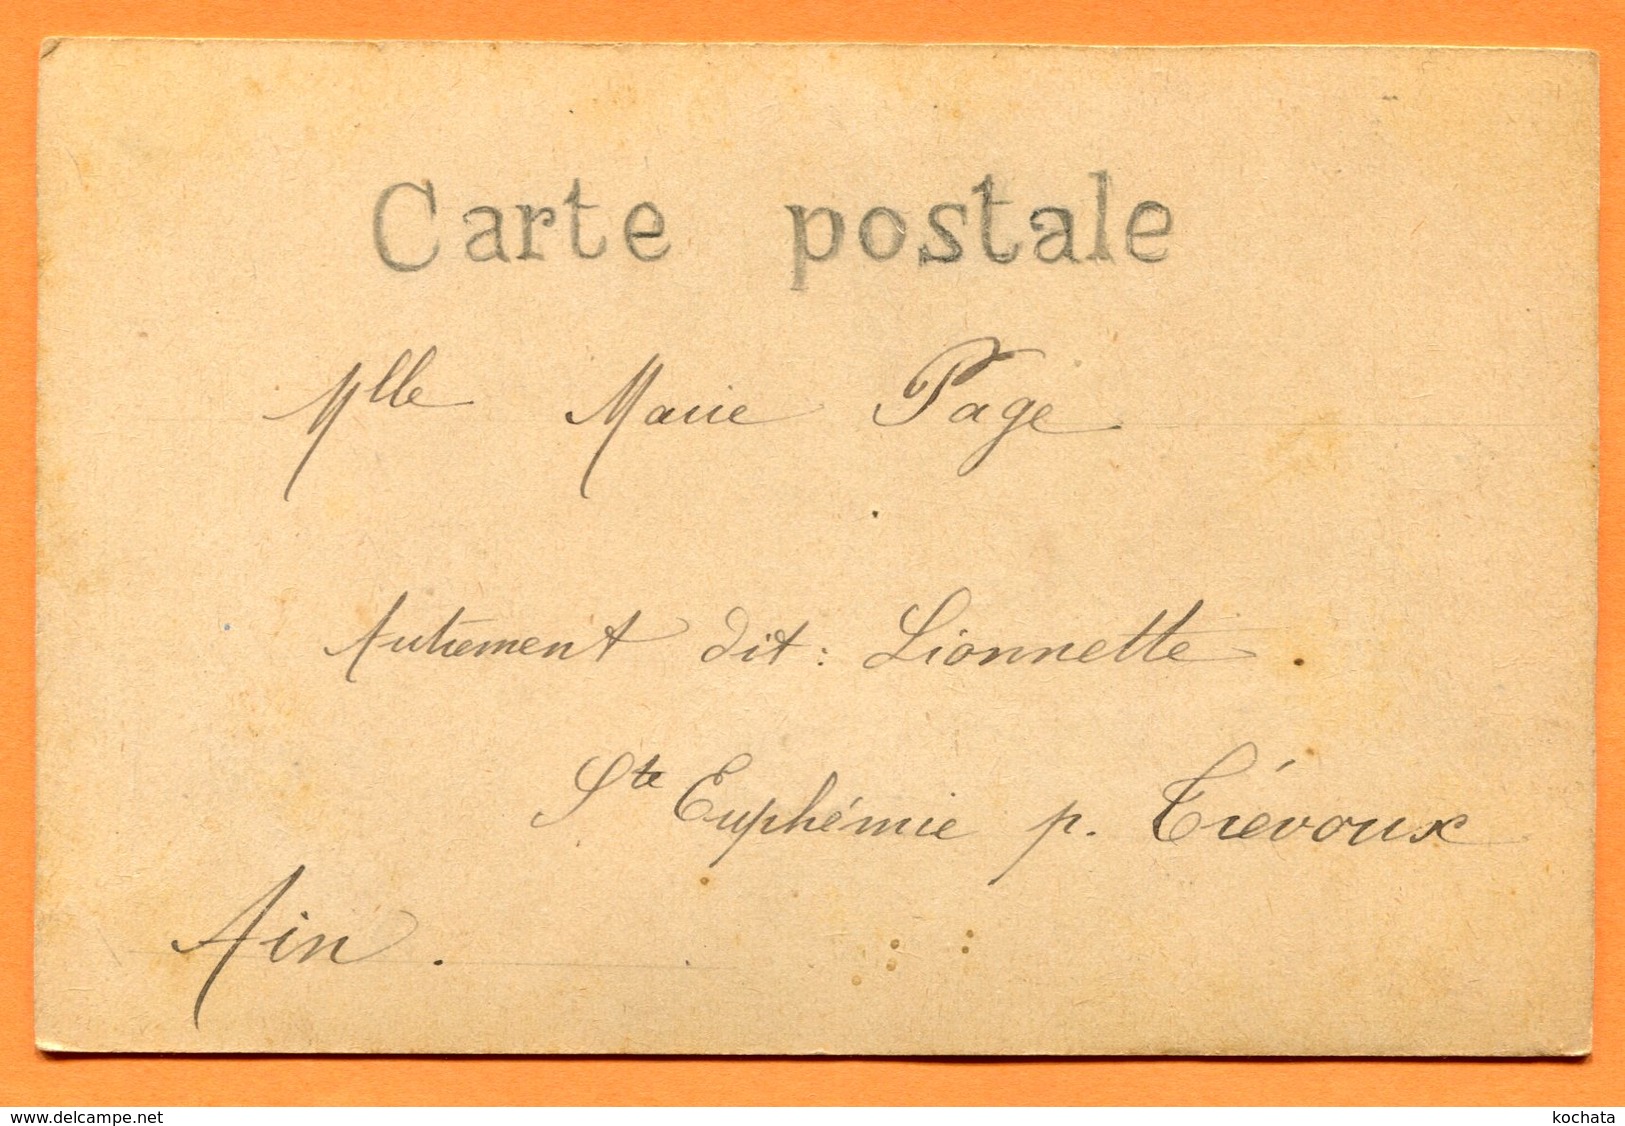 Carte postale
Mlle Marie Page
Autrement dit : Lionnette.
Ste Euphémie p. Trévoux
Ain.
www.delcampe.net
kochata